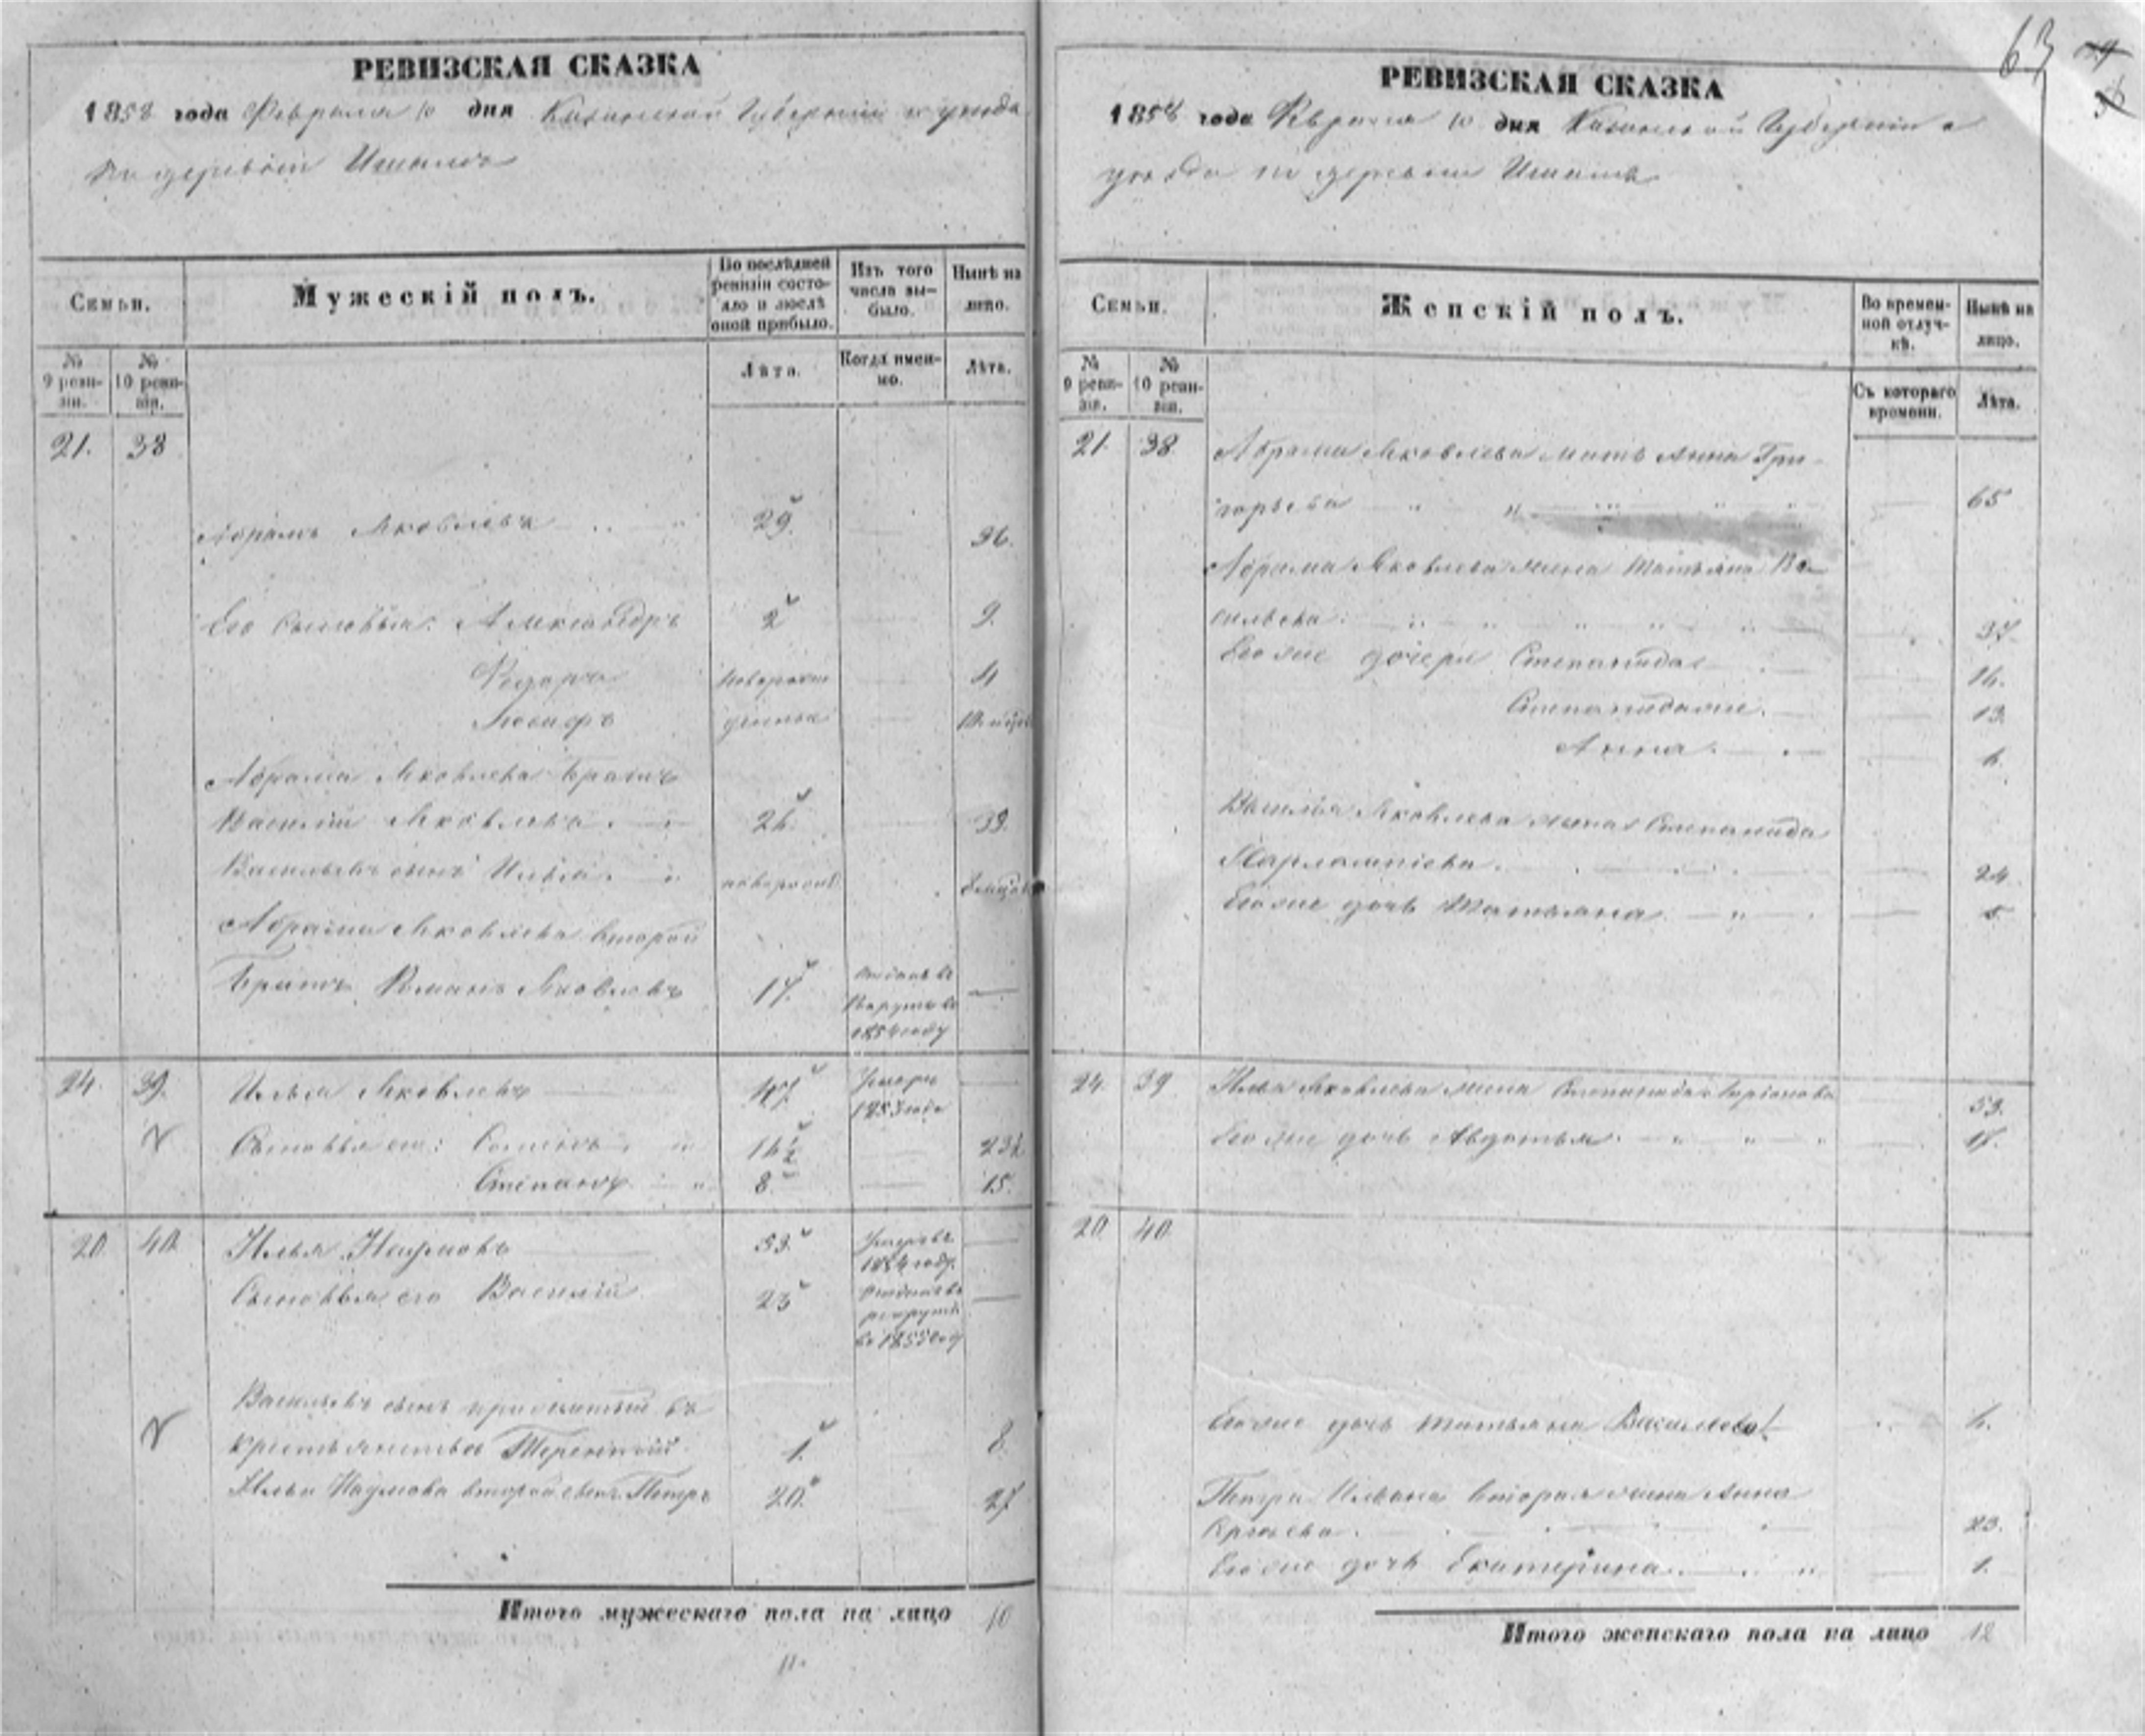 63
РЕВИЗСКАЯ СКАЗКА
1858 года Февраля 10 дня Казанской Губернии и уезда
деревни
Семьи.
Мужескій полъ.
По послѣдней ревизіи состояло и послѣ оной прибыло.
Изъ того числа выбыло.
Нынѣ на лицо.
№ 9 ревизіи.
№ 10 ревизіи.
Лѣта.
Когда именно.
Лѣта.
21. 38
Абрамъ Яковлевъ 29. 36.
Его сыновья: Александръ 2 9.
Федоръ новорож 4
Іосифъ денные
Абрама Яковлева братъ
Василій Яковлевъ 39.
Васильевъ сынъ Илья новорожд
Абрама Яковлева второй
братъ Романъ Яковлевъ 17. отданъ въ
рекруты въ
1854 году
24. 39. Илья Яковлевъ 47. умеръ
1853 года
Сыновья его: 16½ 23½
Степанъ 8 15.
20 40 Илья Наумовъ 53. умеръ въ
1854 году.
Сыновья его Василій 23 отданъ въ
рекруты
въ 1855 году
Васильевъ сынъ прижитый въ
крестьянстве Терентій 1. 8.
Ильи Наумова второй сынъ Петръ 20. 27
Итого мужескаго пола на лицо 10
11.
РЕВИЗСКАЯ СКАЗКА
1858 года Февраля 10 дня Казанской Губерніи и
уезда деревни
Семьи.
Женскій полъ.
Во временной отлучкѣ.
Нынѣ на лицо.
№ 9 ревизіи.
№ 10 ревизіи.
Съ котораго времени.
Лѣта.
21. 38
Абрама Яковлева мать Анна Гри-
горьева 65
Абрама Яковлева жена Татьяна Ва-
сильева 37.
Его же дочери Степанида 16.
Степанида же. 13.
Анна.
Василія Яковлева жена Степанида
Харлампіева. 24
Его же дочь Татьяна
24. 39 Илья Яковлева жена Степанида 53.
Его же дочь Авдотья. 17.
20 40
Его же дочь Татьяна Васильева
Петра Ильина вторая жена Анна
23.
Его же дочь Екатерина. 1.
Итого женскаго пола на лицо 12